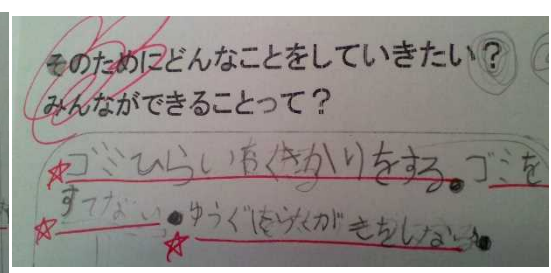 そのためにどんなことをしていきたい？
みんなができることって？
ゴミひらいやくきかりをする。ゴミを
すてない。ゆうぐにらくがきをしない。